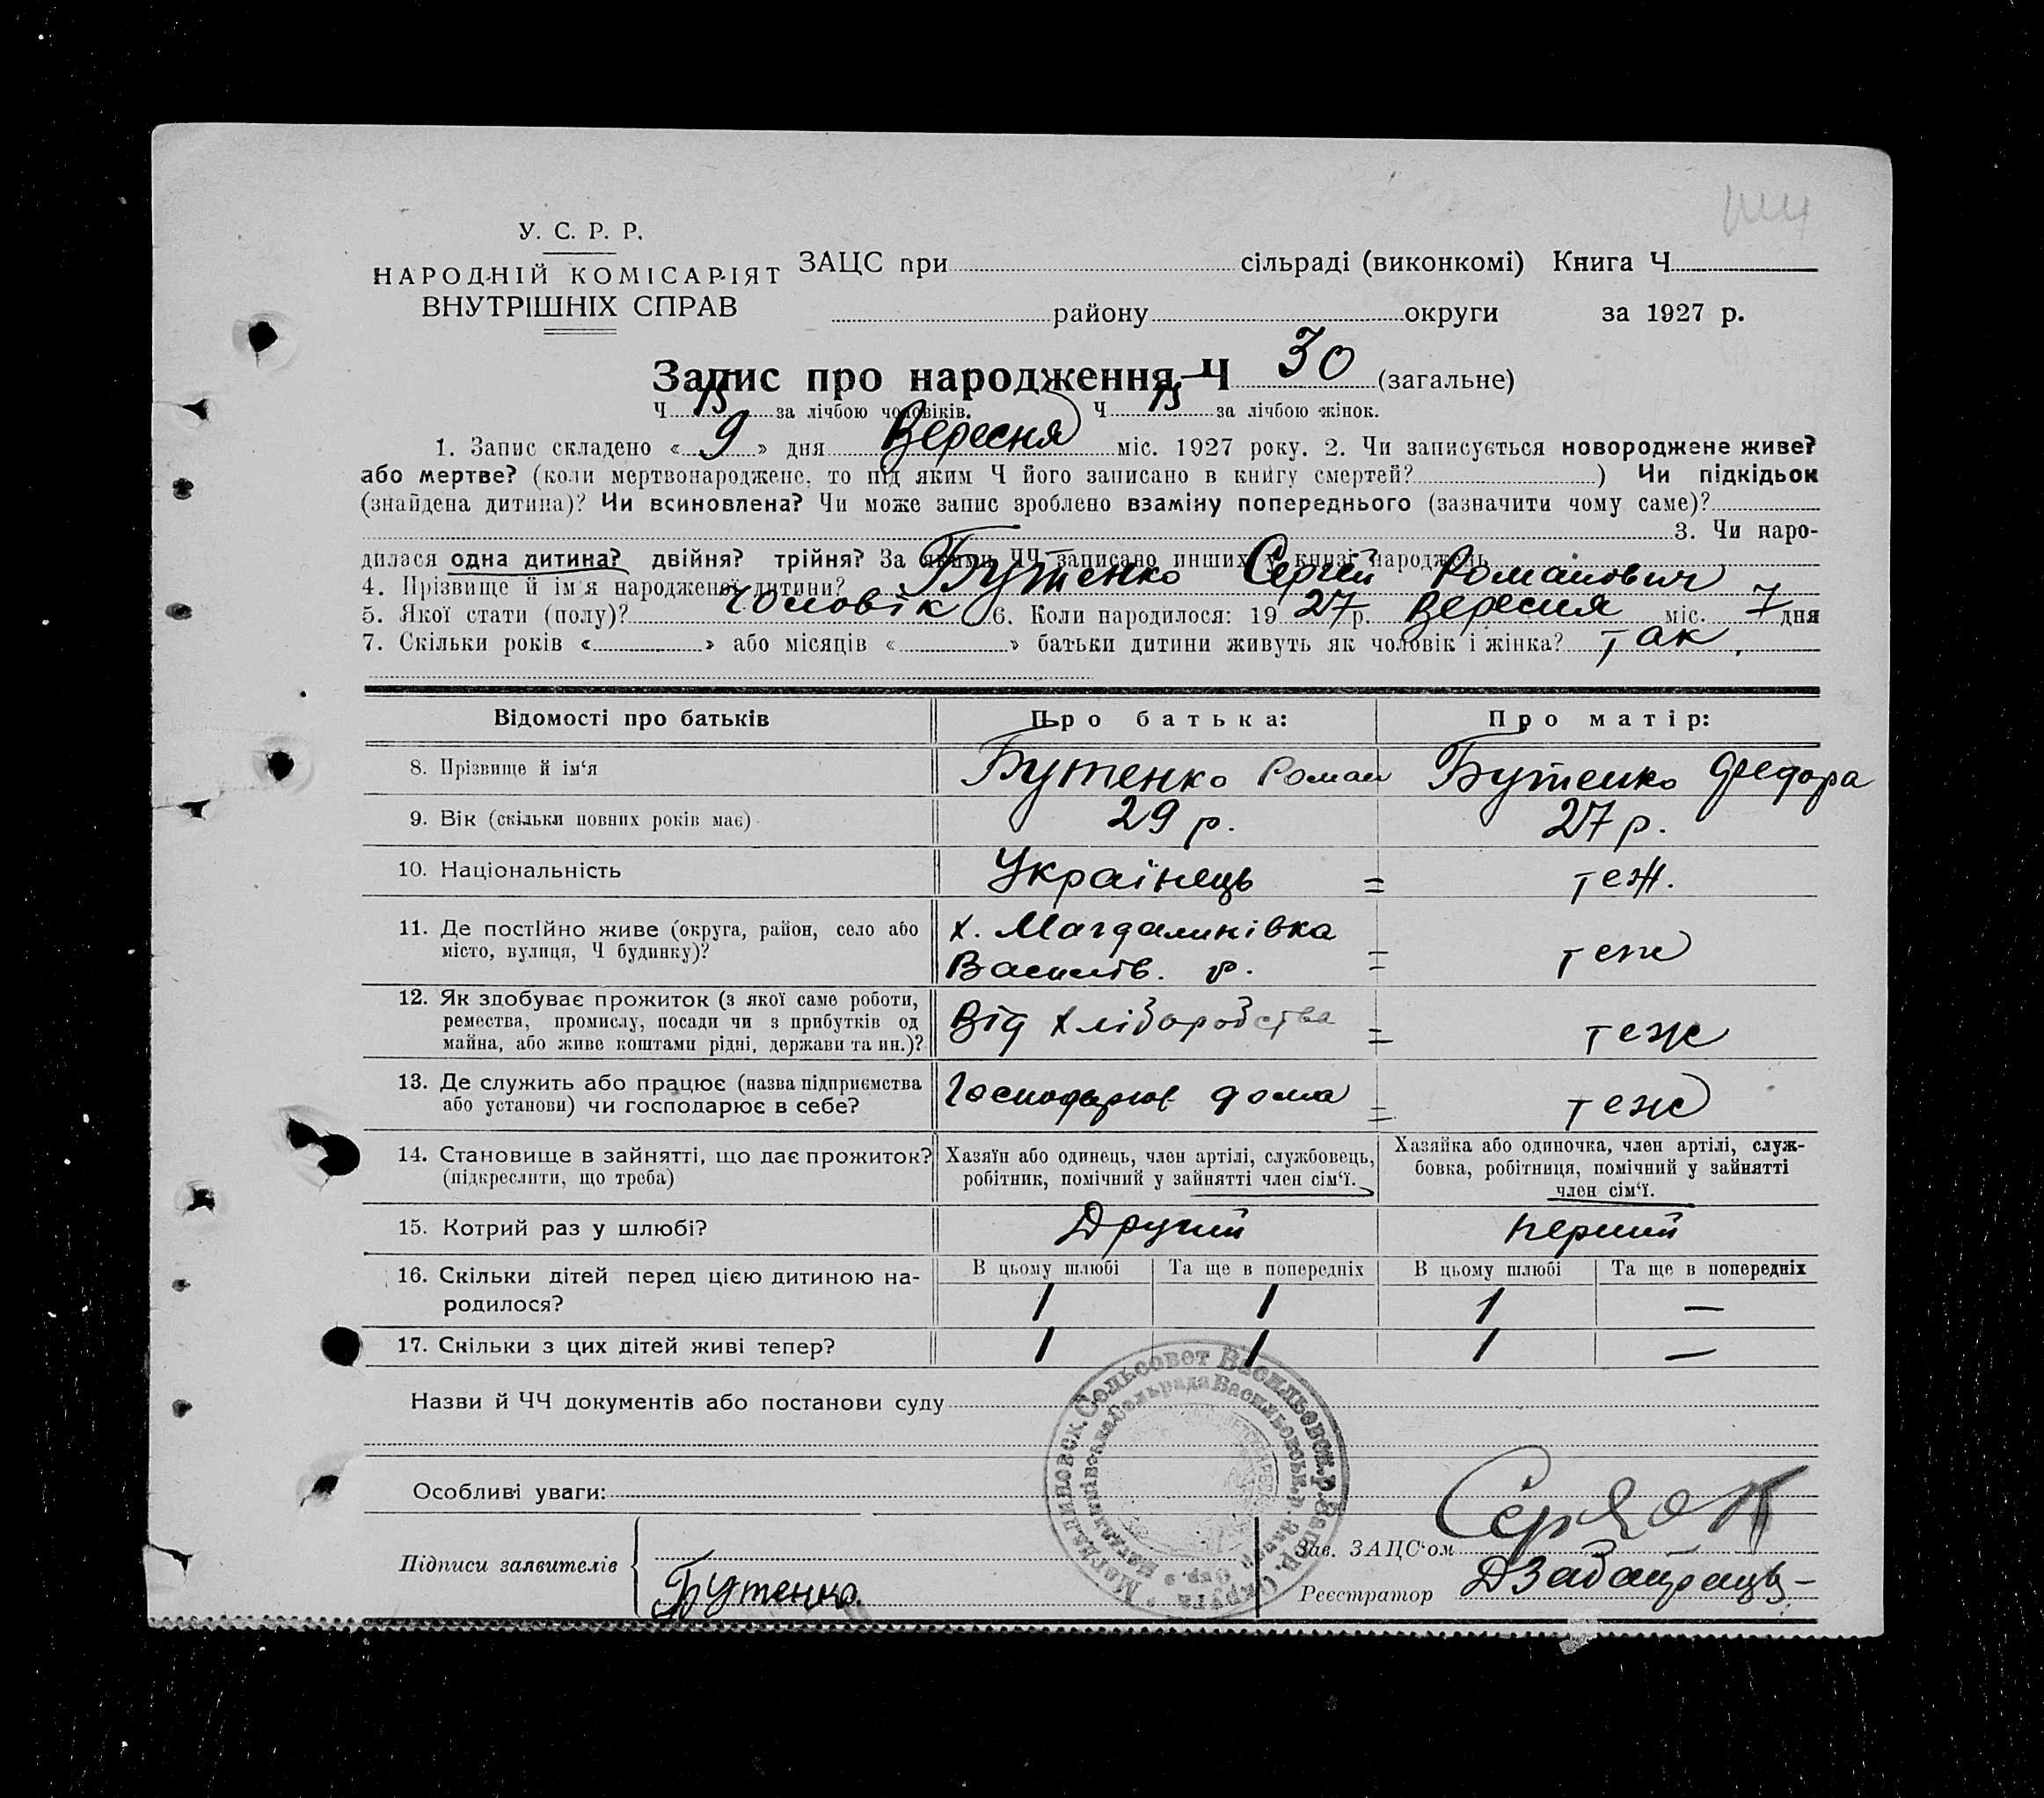 У. С. Р. Р.
НАРОДНІЙ КОМІСАРІЯТ
ВНУТРІШНІХ СПРАВ
ЗАЦС при сільраді (виконкомі) Книга Ч.
району округи за 1927 р.
Запис про народження Ч 30 (загальне)
Ч 15 за лічбою чоловіків. Ч 15 за лічбою жінок.
1. Запис складено « 9 » дня Вересня міс. 1927 року. 2. Чи записується новороджене живе?
або мертве? (коли мертвонароджене, то під яким Ч його записано в книгу смертей? ) Чи підкідьок
(знайдена дитина)? Чи всиновлена? Чи може запис зроблено взаміну попереднього (зазначити чому саме)?
3. Чи наро-
дилася одна дитина? двійня? трійня? За якими ЧЧ записано инших у книзі народжень
4. Прізвище й ім'я народженої дитини? Бутенко Сергій Романович
5. Якої стати (полу)? Чоловік 6. Коли народилося: 19 27 р. Вересня міс. 7 дня
7. Скільки років « » або місяців « » батьки дитини живуть як чоловік і жінка? так.
Відомості про батьків Про батька: Про матір:
8. Прізвище й ім'я Бутенко Роман Бутенко Федора
9. Вік (скільки повних років має) 29 р. 27 р.
10. Національність Українець = теж.
11. Де постійно живе (округа, район, село або х. Магдалинівка
місто, вулиця, Ч будинку)? Василів. р. = теж
12. Як здобуває прожиток (з якої саме роботи,
ремества, промислу, посади чи з прибутків од Від хліборобства = теж
майна, або живе коштами рідні, держави та ин.)?
13. Де служить або працює (назва підприємства
або установи) чи господарює в себе? Господарює дома = теж
14. Становище в зайнятті, що дає прожиток? Хазяїн або одинець, член артілі, службовець, Хазяйка або одиночка, член артілі, служ-
(підкреслити, що треба) робітник, помічний у зайнятті член сім'ї. бовка, робітниця, помічний у зайнятті
член сім'ї.
15. Котрий раз у шлюбі? Другий перший
16. Скільки дітей перед цією дитиною на- В цьому шлюбі Та ще в попередніх В цьому шлюбі Та ще в попередніх
родилося? 1 1 1 —
17. Скільки з цих дітей живі тепер? 1 1 1 —
Назви й ЧЧ документів або постанови суду
Магдалиновск. Сельсовет Васильевск. р. Запор. Округа
Магдалинівська Сельрада Васильовськ. р. Запор. Окр.
Особливі уваги:
Підписи заявителів Бутенко.
Зав. ЗАЦС'ом
Реєстратор